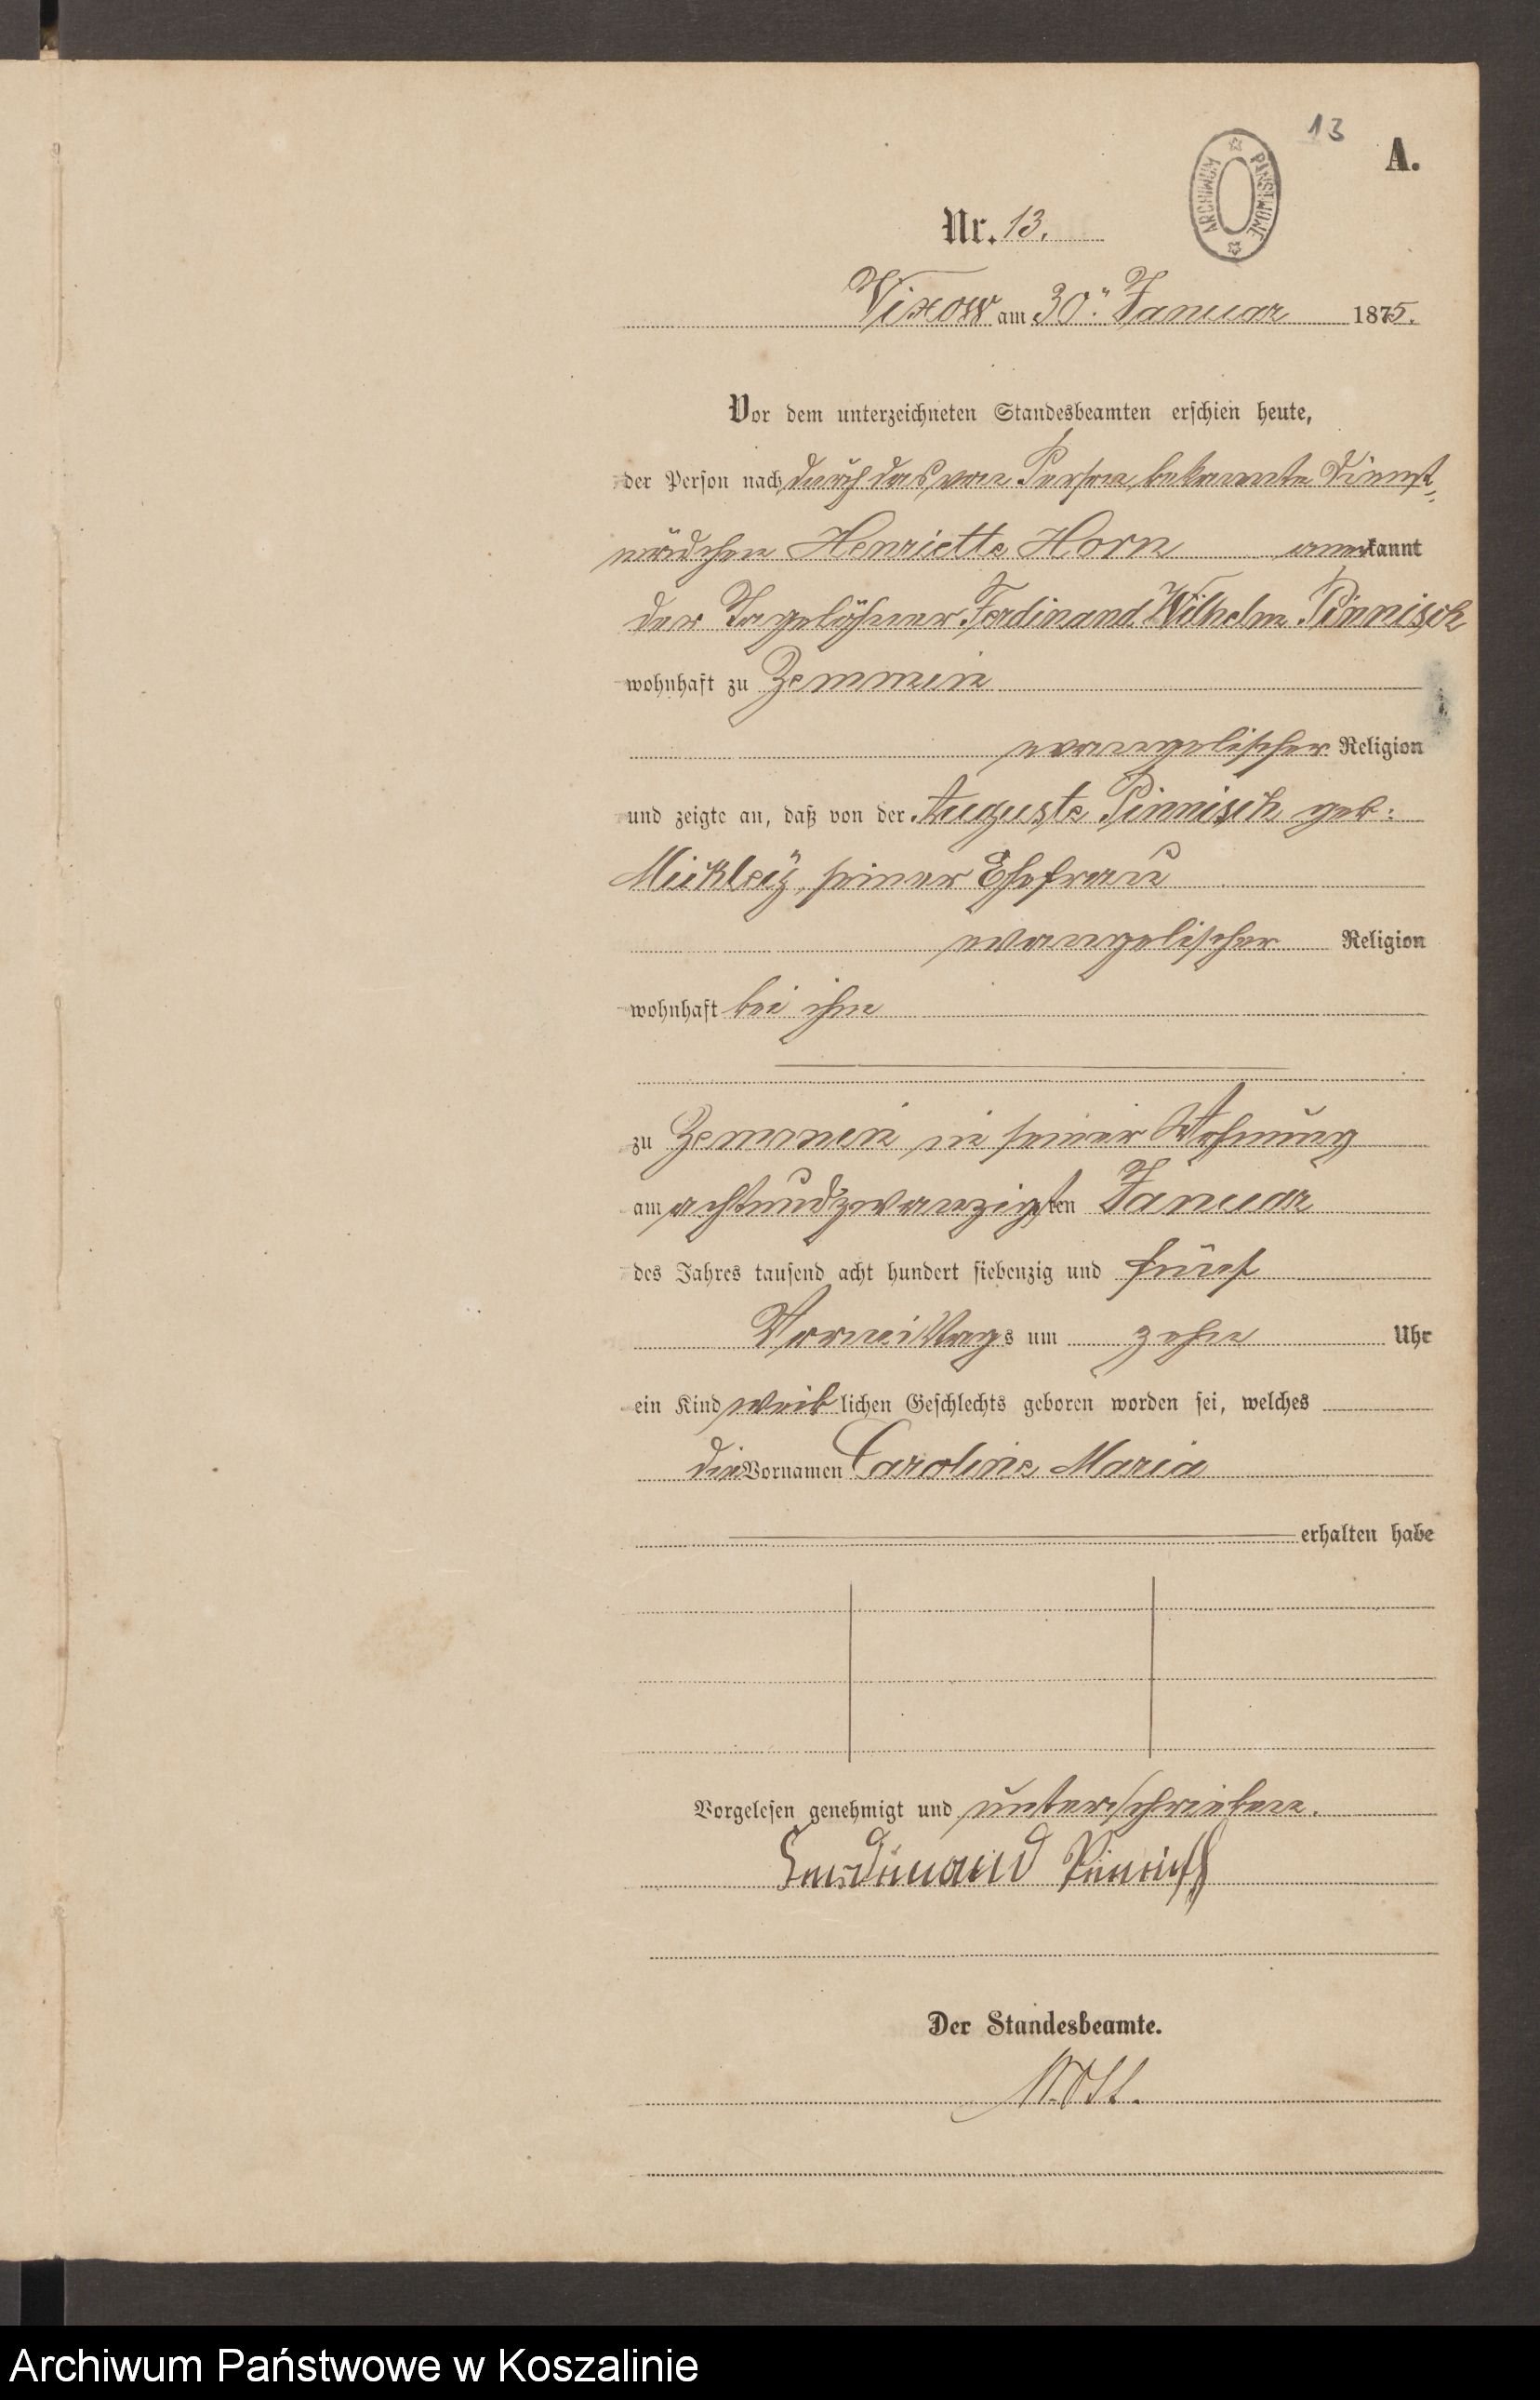 13
A.
ARCHIWUM PAŃSTWOWE
Nr. 13.
Vixow am 30ten Januar 1875.
Vor dem unterzeichneten Standesbeamten erschien heute,
der Person nach durch das von Person bekannte Dienst-
mädchen Henriette Horn anerkannt
der Tagelöhner Ferdinand Wilhelm Pinnisch
wohnhaft zu Zemmen
evangelischer Religion
und zeigte an, daß von der Auguste Pinnisch geb:
Mickley, seiner Ehefrau
evangelischer Religion
wohnhaft bei ihm
zu Zemmen in seiner Wohnung
am achtundzwanzigsten Januar
des Jahres tausend acht hundert siebenzig und fünf
Vormittags um zehn Uhr
ein Kind weiblichen Geschlechts geboren worden sei, welches
die Vornamen Caroline Maria
erhalten habe
Vorgelesen genehmigt und unterschrieben.
Ferdinand Pinnisch
Der Standesbeamte.
Archiwum Państwowe w Koszalinie